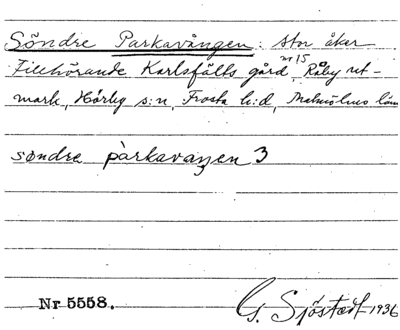 Söndre Parkavången: stn åker
Tillhörande Karlsfälts gård nr 15, Råby ut-
mark, Hörby s:n, Frosta h:d, Malmöhus län
søndre parkavaŋen 3
Nr 5558.
G. Sjöstedt 1936